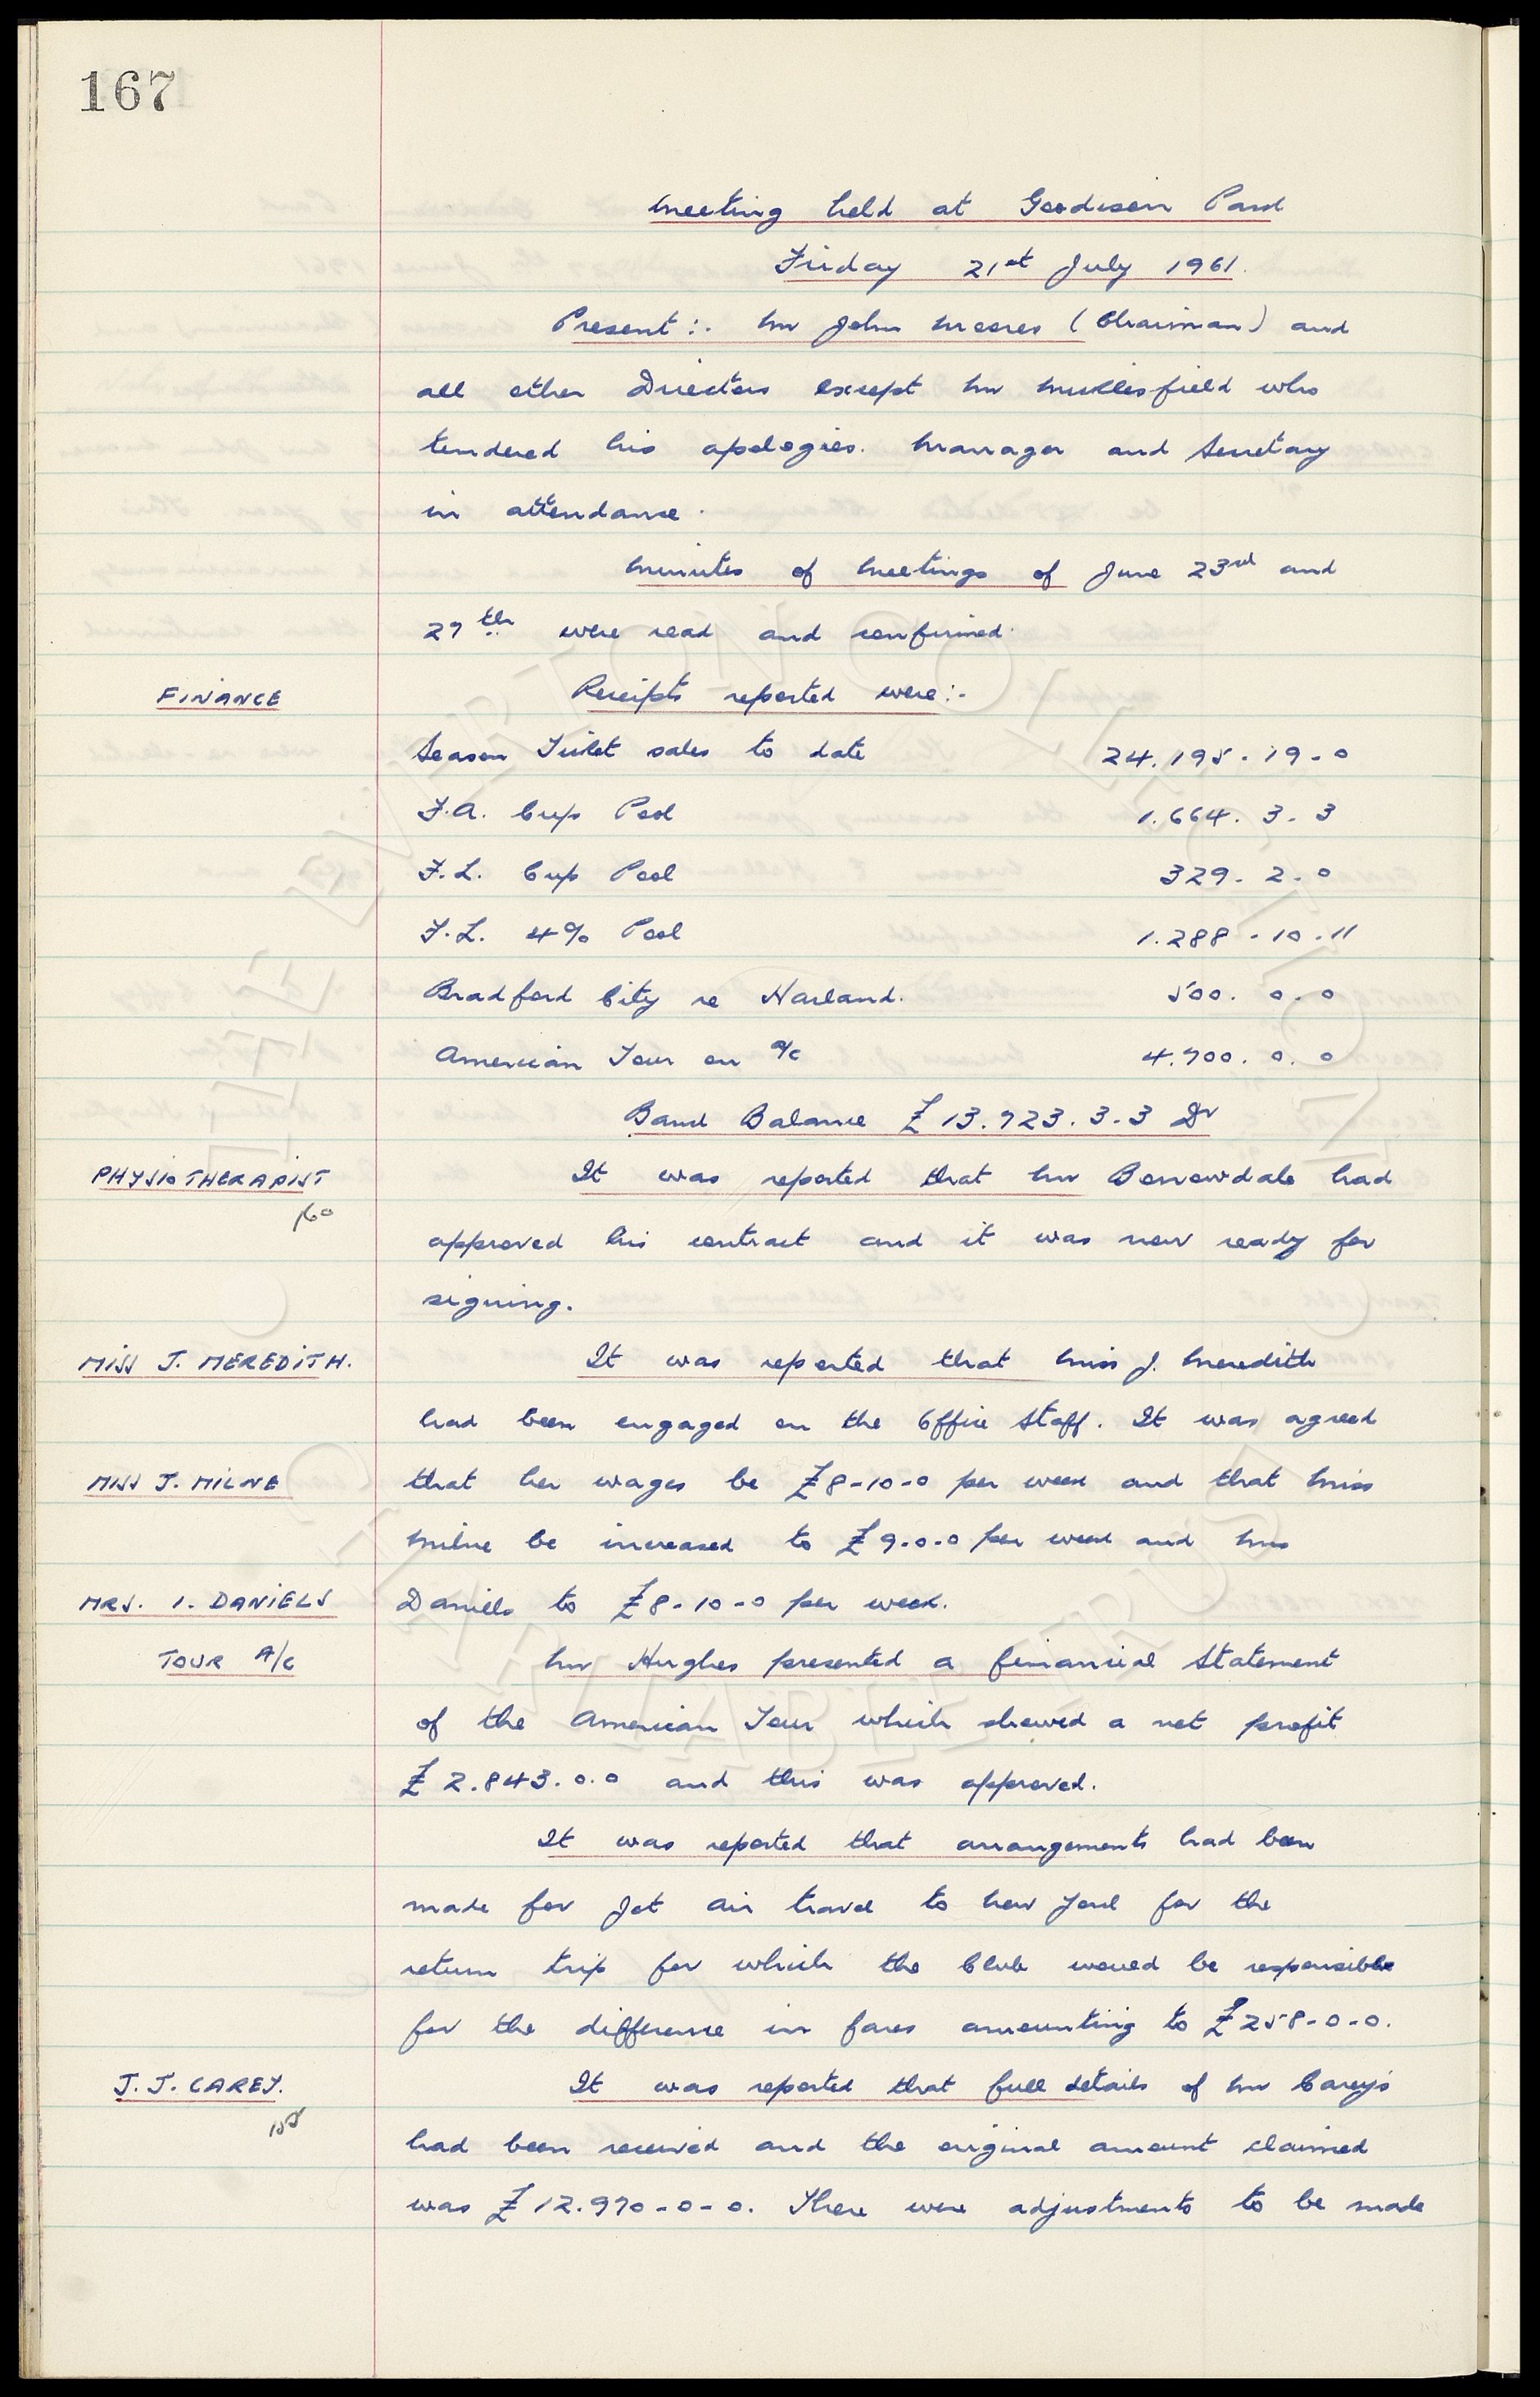 167
Meeting held at Goodison Park
Friday 21st July 1961.
Present:- Mr John Moores (Chairman) and
all other Directors except Mr Micklesfield who
tendered his apologies. Manager and Secretary
in attendance.
Minutes of Meetings of June 23rd and
27th were read and confirmed.
FINANCE
Receipts reported were:-
Season Ticket sales to date 24.195.19.0
F.A. Cup Pool 1.664.3.3
F.L. Cup Pool 329.2.0
F.L. 4% Pool 1.288.10.11
Bradford City re Harland. 500.0.0
American Tour on a/c 4.700.0.0
Bank Balance £13.723.3.3 Dr
PHYSIOTHERAPIST
It was reported that Mr Borrowdale had
160
approved his contract and it was now ready for
signing.
MISS J. MEREDITH.
It was reported that Miss J. Meredith
had been engaged on the Office Staff. It was agreed
MISS J. MILNE
that her wages be £8-10-0 per week and that Miss
Milne be increased to £9.0.0 per week and Mrs
MRS. I. DANIELS
Daniels to £8-10-0 per week.
TOUR A/C
Mr Hughes presented a financial Statement
of the American Tour which showed a net profit
£2.843.0.0 and this was approved.
It was reported that arrangements had been
made for Jet Air travel to New York for the
return trip for which the Club would be responsible
for the difference in fares amounting to £258-0-0.
J. J. CAREY.
It was reported that full details of Mr Carey's
had been received and the original amount claimed
was £12.970-0-0. There were adjustments to be made